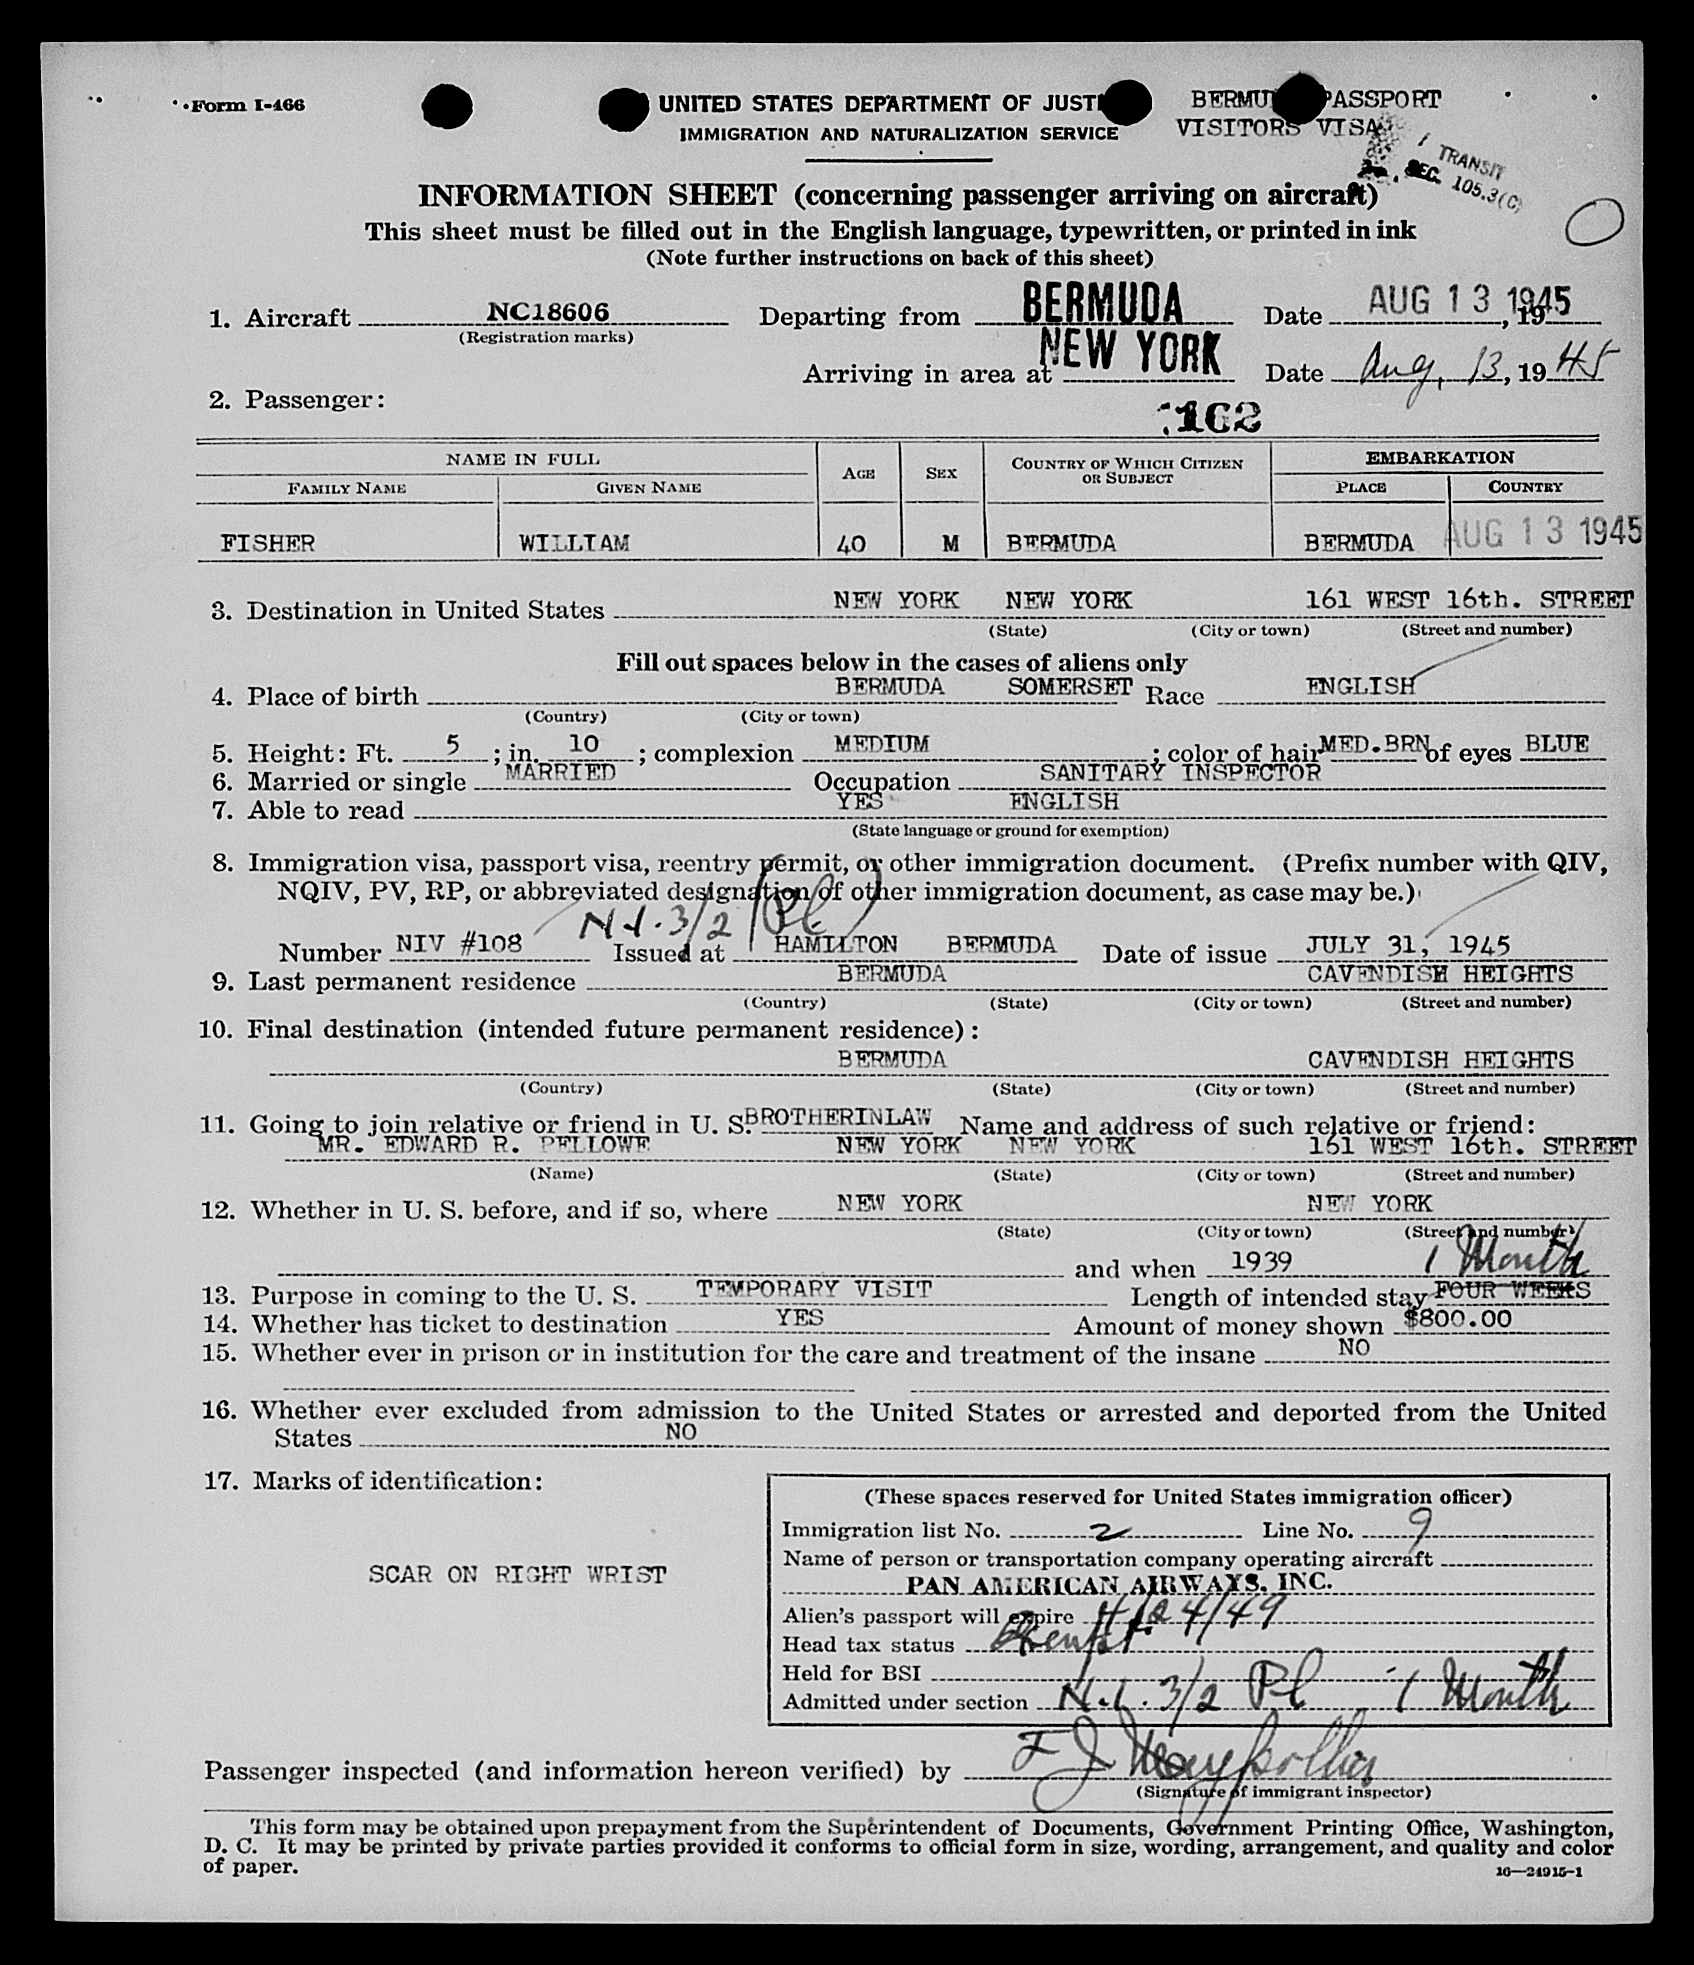 Form I-466
UNITED STATES DEPARTMENT OF JUSTI
IMMIGRATION AND NATURALIZATION SERVICE
BERMU PASSPORT
VISITORS VISA
TRANSIT
SEC. 105.3(C)
INFORMATION SHEET (concerning passenger arriving on aircraft)
This sheet must be filled out in the English language, typewritten, or printed in ink
(Note further instructions on back of this sheet)
1. Aircraft NC18606 Departing from BERMUDA Date AUG 13 1945, 19
(Registration marks)
Arriving in area at NEW YORK Date Aug. 13, 1945
2. Passenger:
162
NAME IN FULL
FAMILY NAME GIVEN NAME AGE SEX COUNTRY OF WHICH CITIZEN OR SUBJECT EMBARKATION PLACE COUNTRY
FISHER WILLIAM 40 M BERMUDA BERMUDA AUG 13 1945
3. Destination in United States NEW YORK NEW YORK 161 WEST 16th. STREET
(State) (City or town) (Street and number)
Fill out spaces below in the cases of aliens only
4. Place of birth BERMUDA SOMERSET Race ENGLISH
(Country) (City or town)
5. Height: Ft. 5; in. 10; complexion MEDIUM; color of hair MED.BRN of eyes BLUE
6. Married or single MARRIED Occupation SANITARY INSPECTOR
7. Able to read YES ENGLISH
(State language or ground for exemption)
8. Immigration visa, passport visa, reentry permit, or other immigration document. (Prefix number with QIV,
NQIV, PV, RP, or abbreviated designation of other immigration document, as case may be.)
N.I. 3/2 (Pl)
Number NIV #108 Issued at HAMILTON BERMUDA Date of issue JULY 31, 1945
9. Last permanent residence BERMUDA CAVENDISH HEIGHTS
(Country) (State) (City or town) (Street and number)
10. Final destination (intended future permanent residence):
BERMUDA CAVENDISH HEIGHTS
(Country) (State) (City or town) (Street and number)
11. Going to join relative or friend in U. S. BROTHERINLAW Name and address of such relative or friend:
MR. EDWARD R. PELLOWE NEW YORK NEW YORK 161 WEST 16th. STREET
(Name) (State) (City or town) (Street and number)
12. Whether in U. S. before, and if so, where NEW YORK NEW YORK
(State) (City or town) (Street and number)
and when 1939 1 Month
13. Purpose in coming to the U. S. TEMPORARY VISIT Length of intended stay FOUR WEEKS
14. Whether has ticket to destination YES Amount of money shown $800.00
15. Whether ever in prison or in institution for the care and treatment of the insane NO
16. Whether ever excluded from admission to the United States or arrested and deported from the United
States NO
17. Marks of identification:
SCAR ON RIGHT WRIST
(These spaces reserved for United States immigration officer)
Immigration list No. 2 Line No. 9
Name of person or transportation company operating aircraft
PAN AMERICAN AIRWAYS, INC.
Alien's passport will expire 4/24/49
Head tax status Exempt
Held for BSI
Admitted under section N.I. 3/2 Pl - 1 Month
Passenger inspected (and information hereon verified) by F J
(Signature of immigrant inspector)
This form may be obtained upon prepayment from the Superintendent of Documents, Government Printing Office, Washington,
D. C. It may be printed by private parties provided it conforms to official form in size, wording, arrangement, and quality and color
of paper.
16—24915-1